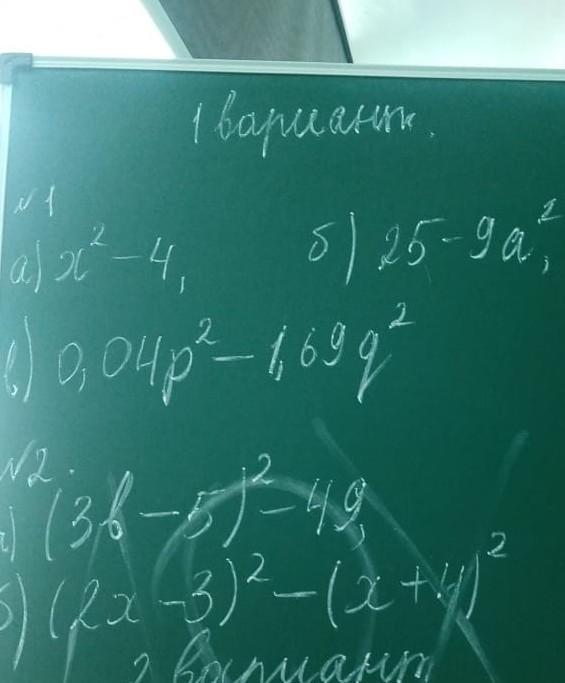 1 вариант.
№1
а) x² – 4,   б) 25 – 9a²,
в) 0,04p² – 1,69q²
№2.
а) (3b – 5)² – 49,
б) (2x – 3)² – (x + 4)²
2 вариант